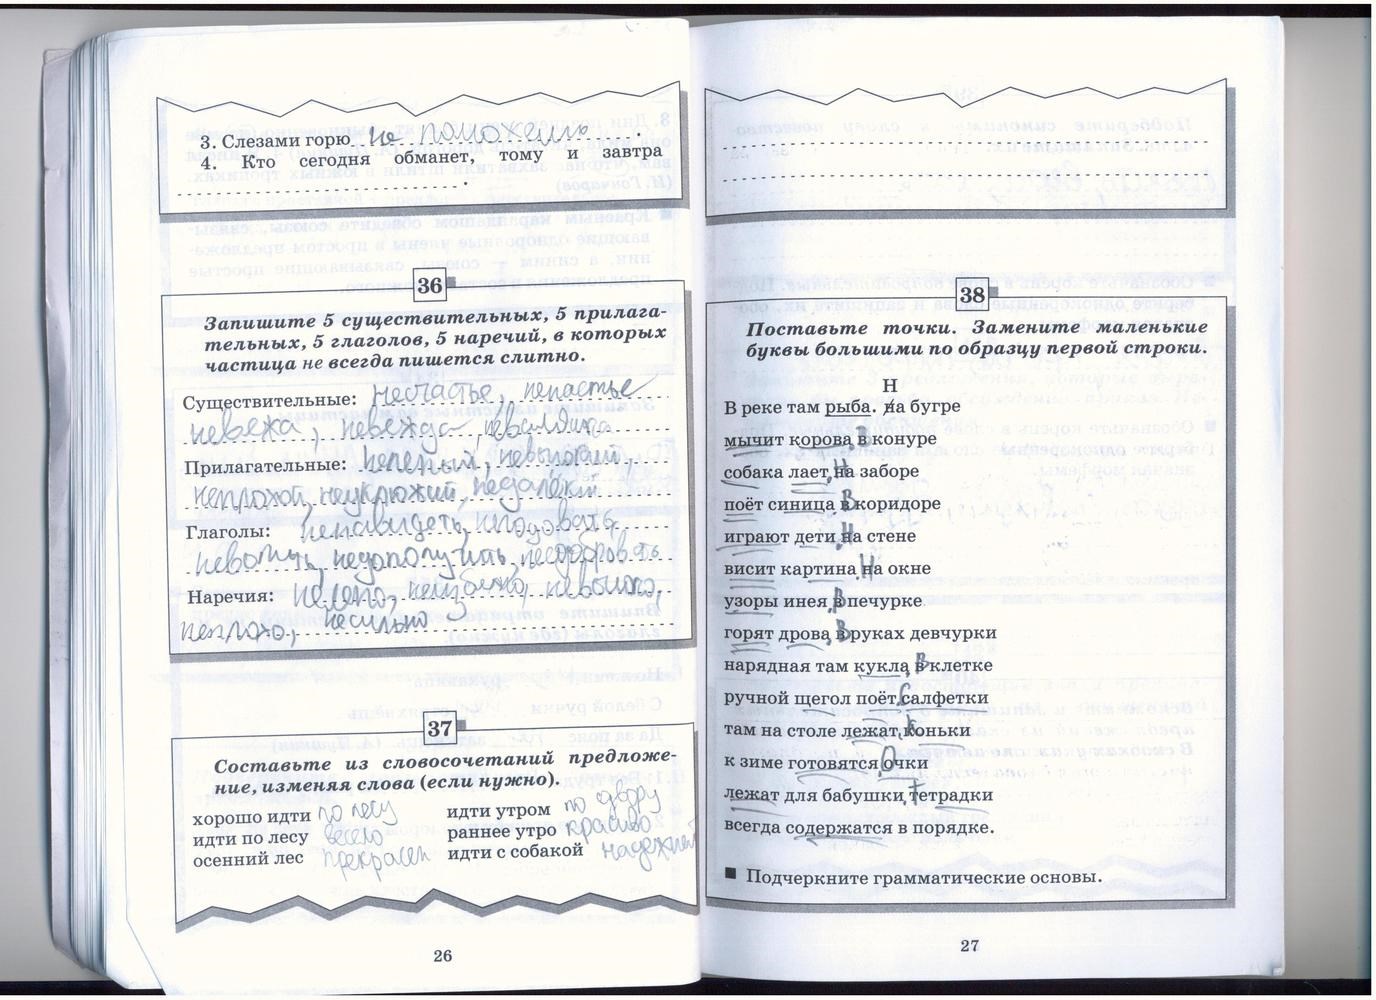 3. Слезами горю не поможешь.
4. Кто сегодня обманет, тому и завтра
.
36
Запишите 5 существительных, 5 прилага-
тельных, 5 глаголов, 5 наречий, в которых
частица не всегда пишется слитно.
Существительные: несчастье, ненастье
невежа, невежда, неваляшка
Прилагательные: нелепый, невысокий,
неплохой, неуклюжий, недалёкий
Глаголы: ненавидеть, негодовать,
неволить, недополучить, нездоровить
Наречия: нелепо, неизбежно, невысоко,
неплохо, несильно
37
Составьте из словосочетаний предложе-
ние, изменяя слова (если нужно).
хорошо идти по лесу идти утром по двору
идти по лесу весело раннее утро красиво
осенний лес прекрасен идти с собакой
26
38
Поставьте точки. Замените маленькие
буквы большими по образцу первой строки.
Н
В реке там рыба. на бугре
мычит корова. В конуре
собака лает. На заборе
поёт синица. В коридоре
играют дети. На стене
висит картина. На окне
узоры инея. В печурке
горят дрова. В руках девчурки
нарядная там кукла. В клетке
ручной щегол поёт. Салфетки
там на столе лежат. Коньки
к зиме готовятся. Очки
лежат для бабушки. Тетрадки
всегда содержатся в порядке.
■ Подчеркните грамматические основы.
27